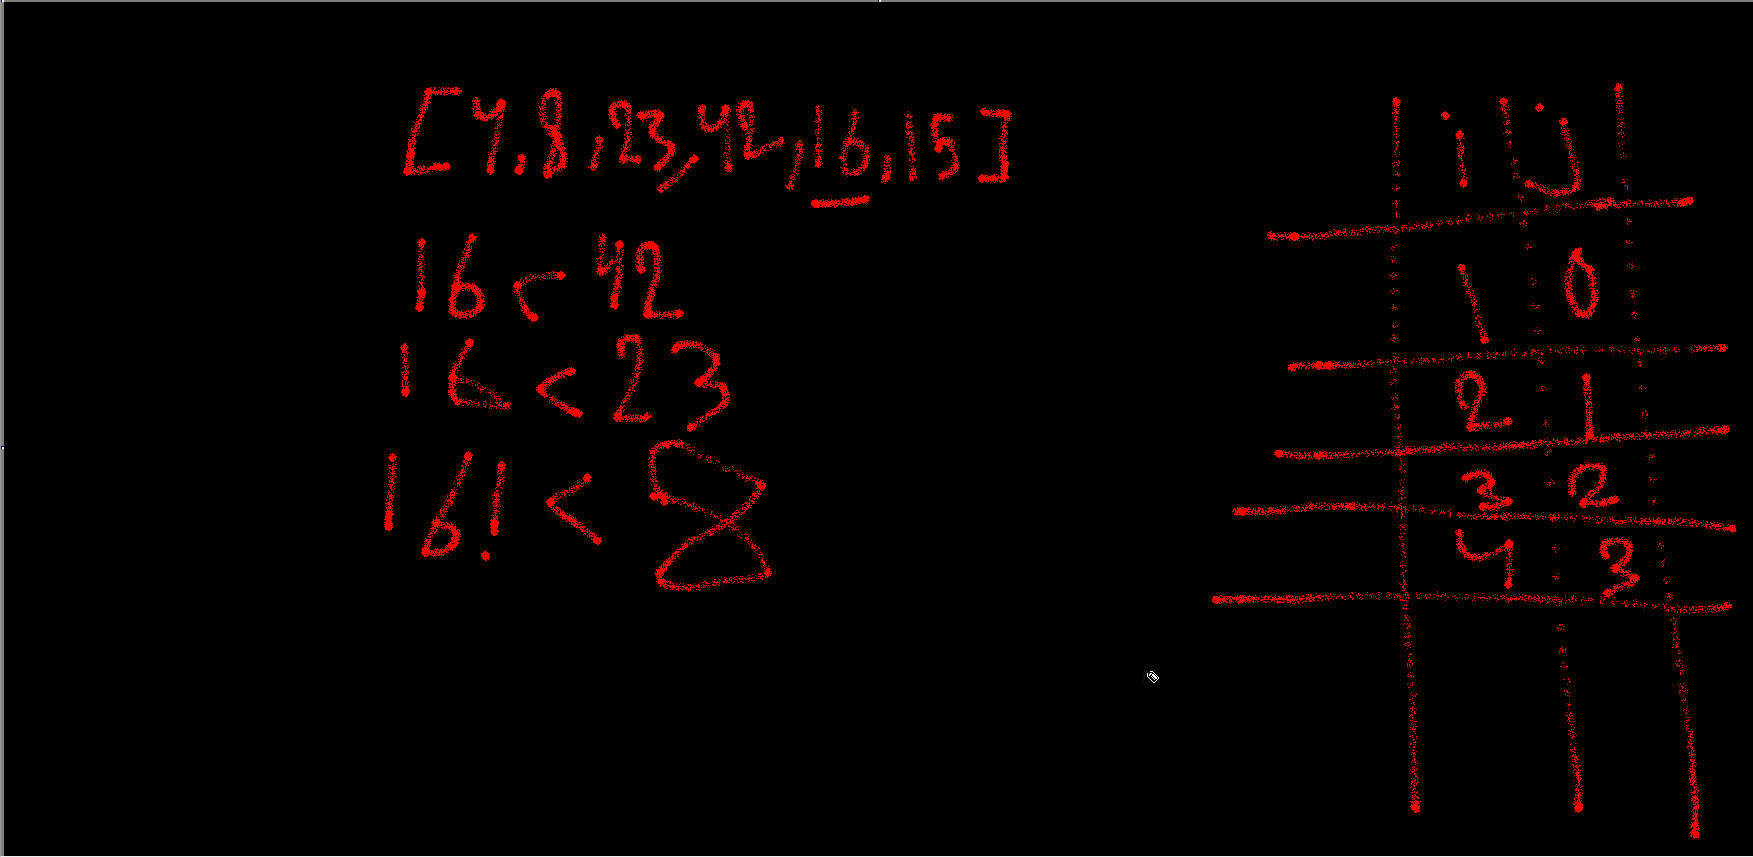 [4,8,23,42,16,15]
16 < 42
16 < 23
16! < 8
i j
1 0
2 1
3 2
4 3